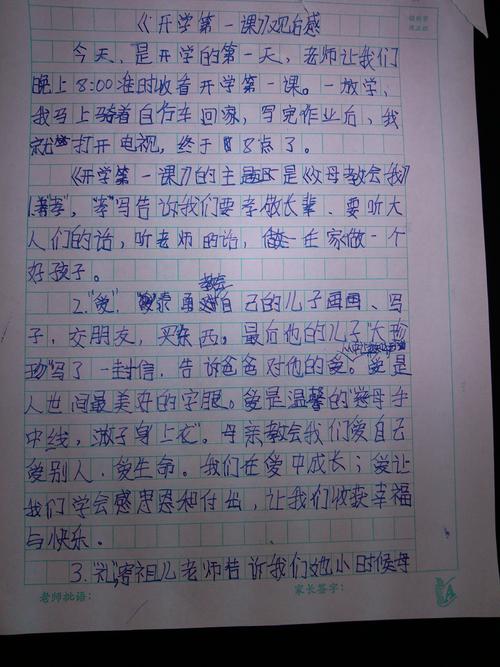 《开学第一课》观后感
今天，是开学的第一天，老师让我们
晚上8:00准时收看开学第一课。一放学，
我马上骑着自行车回家，写完作业后，我
就打开电视，终于8点了。
《开学第一课》的主题是《父母教会我》
1."孝"，"孝"写告诉我们要孝敬长辈、要听大
人们的话，听老师的话，做在家做一个
好孩子。
教会
2."爱"，勇自己的儿子画画、写
字，交朋友，买东西。最后他的儿子"大
写了一封信，告诉爸爸对他的爱。爱是
人世间最美好的字眼。爱是温馨的"母手
中线，游子身上衣"。母亲教会我们爱自己
爱别人，爱生命。我们在爱中成长；爱让
我们学会感思恩和付出，让我们收获幸福
与快乐。
3."礼"，祖儿老师告诉我们她小时候母
老师批语：
家长签字：